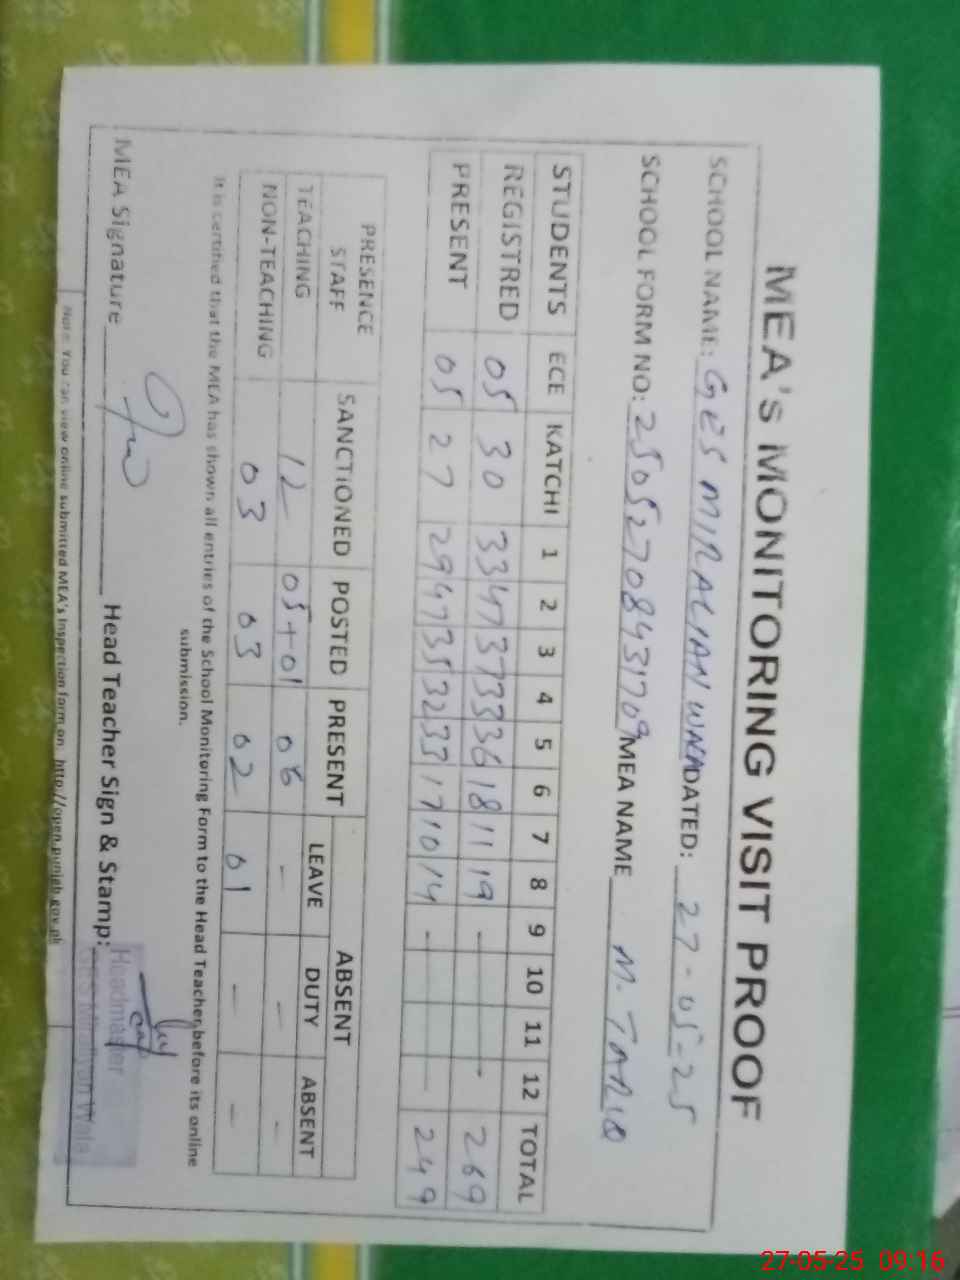 MEA's MONITORING VISIT PROOF
SCHOOL NAME: GES MIRALIAN WALA DATED: 27-05-25
SCHOOL FORM NO: 25052708431709 MEA NAME M. TARIQ
STUDENTS ECE KATCHI 1 2 3 4 5 6 7 8 9 10 11 12 TOTAL
REGISTRED 05 30 33 47 37 33 36 18 11 19 - 269
PRESENT 05 27 29 47 35 32 33 17 10 14 - 249
PRESENCE ABSENT
STAFF SANCTIONED POSTED PRESENT LEAVE DUTY ABSENT
TEACHING 12 05+01 06 - - -
NON-TEACHING 03 03 02 01 - -
It is certified that the MEA has shown all entries of the School Monitoring Form to the Head Teacher before its online
submission.
MEA Signature Head Teacher Sign & Stamp:
Headmaster
GES Mirallyan Wala
Note: You can view online submitted MEA's Inspection form on http://open.punjab.gov.pk
27-05-25 09:16